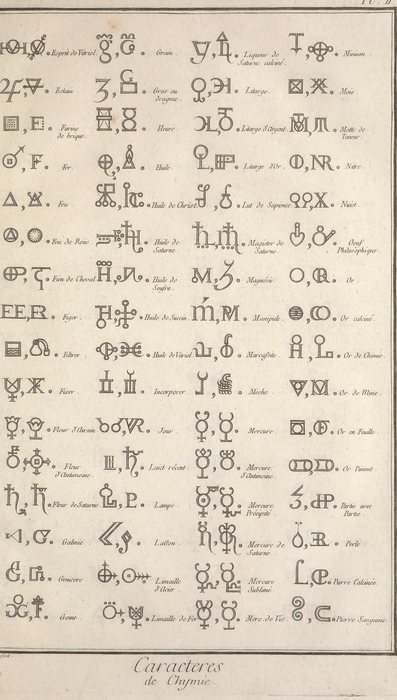 Pl. II
Esprit de Vitriol.
Grain.
Liqueur de
Saturne calciné.
Minium
Estain
Gros ou
dragme.
Litarge
Mois
Farine
de brique.
Heure
Litarge d'Argent.
Motte de
Taneur.
Fer
Huile
Litarge d'Or
Nitre
Feu
Huile de Christ.
Lut de Sapience
Nuict
Feu de Roue
Huile de
Saturne.
Magister de
Saturne.
Oeuf
Philosophique.
Fien de Cheval
Huile de
Soufre.
Magnésie
Or
Figer
Huile de Succin
Manipule
Or calciné
Filtrer
Huile de Vitriol
Marcassite
Or de Chimie
Fixer
Incorporer
Meche
Or de Mine
Fleur d'Airain
Jour
Mercure
Or en Feuille
Fleur
d'Antimoine
Laict récent
Mercure
d'Antimoine
Or Piment
Fleur de Saturne
Lampe
Mercure
Précipité
Partie avec
Partie
Galmie
Laiton
Mercure de
Saturne
Perle
Genievre
Limaille
d'Acier
Mercure
Sublimé
Pierre Calcinée
Gome
Limaille de Fer
Merc. de Vie
Pierre Sanguine
Caracteres
de Chymie.